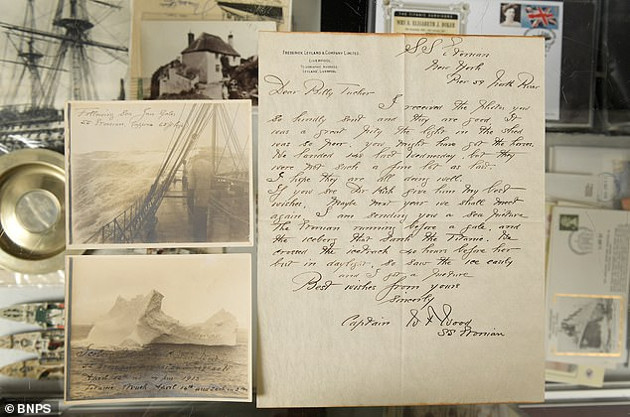 THE TITANIC SURVIVORS
MRS A. ELIZABETH J. DIKER
FREDERICK LEYLAND & COMPANY LIMITED.
LIVERPOOL.
TELEGRAPHIC ADDRESS,
LEYLAND, LIVERPOOL.
SS Etonian
New York
Pier 59 North River
Dear Billy Tucker
I received the photos you
so kindly sent and they are good. It
was a great pity the light in the shed
was so poor. you might have got the horses.
We landed was last Wednesday, but they
were not such a fine lot as last.
I hope they are all doing well.
If you see Dr Kirk give him my best
wishes. Maybe next year we shall meet
again. I am sending you a sea picture
the Etonian running before a gale, and
the iceberg that sank the Titanic. We
crossed the icetrack 40 hours before her
but in daylight, so saw the ice easily
and I got a picture
Best wishes from yours
Sincerely
Captain W F Wood
SS Etonian
Following Sea
SS Etonian
1912
Titanic struck April 14th
© BNPS